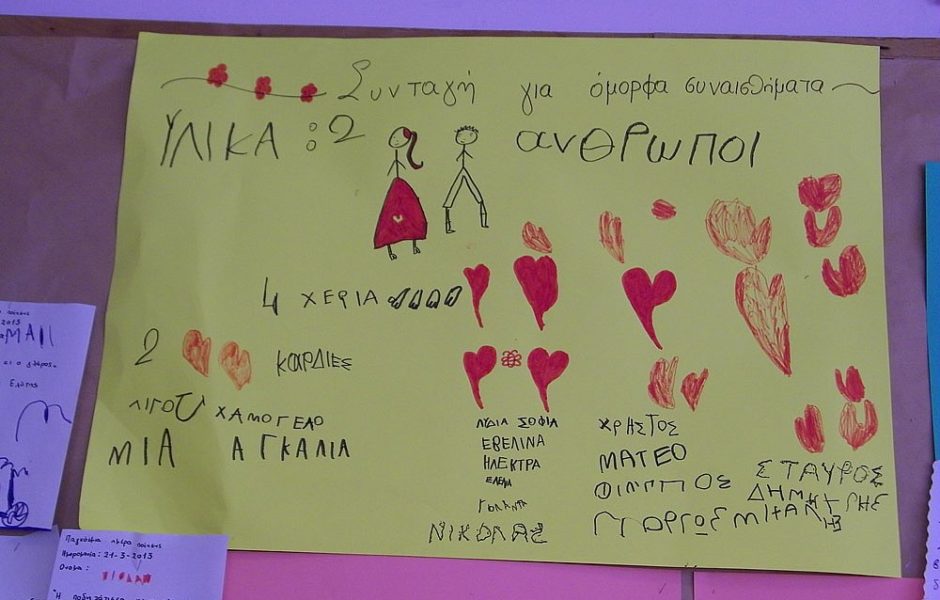 Συνταγή για όμορφα συναισθήματα
ΥΛΙΚΑ : 2 ανθΡωΠΟΙ
4 ΧΕΡΙΑ
2 ΚαΡΔΙΕΣ
ΛΙΓΟ ΧΑΜΟΓΕΛΟ
ΜΙΑ ΑΓΚΑΛΙΑ
ΛΙΔΙΑ ΣΟΦΙΑ
ΕΒΕΛΙΝΑ
ΗΛΕΚΤΡΑ
ΕΛΕΝΑ
ΝΙΚΟΛΑΣ
ΧΡΗΣΤΟΣ
ΜΑΤΕΟ
ΦΙΛΙΠΠΟΣ
ΓΙΟΡΓΟΣ
ΣΤΑΥΡΟΣ
ΔΗΜΗΤΡΗΣ
2013
ΜΑΠ
Παγκόσμια μέρα ποίησης
Ημερομηνία : 21-3-2013
Όνομα :